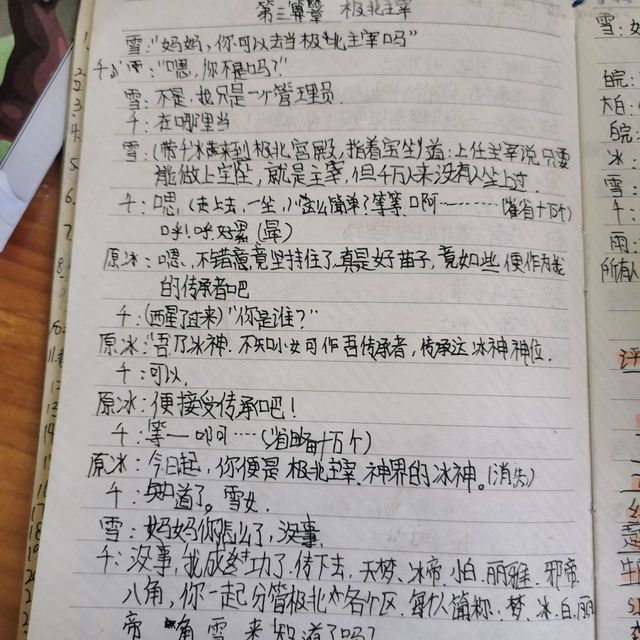 第三章 极北主宰
雪:“妈妈,你可以去当极北主宰吗”
千:“嗯,你不是吗?”
雪:不是,我只是一个管理员.
千:在哪里当
雪:(带千来到极北宫殿,指着宝坐)道:上任主宰说,只要
能做上宝座,就是主宰,但千万年来没有人坐上过.
千:嗯,(走上去,一坐,)怎么简单?等等啊…………(省十万个)
呼!呼,好累(晕)
原冰:嗯,不错,竟坚持住了,真是好苗子,竟如些,便作为我
的传承者吧
千:(西星了过来)“你是谁?”
原冰:“吾乃冰神.不知小女可作吾传承者,传承这冰神神位.
千:可以.
原冰:便接受传承吧!
千:等一啊……(省略十万个)
原冰:今日起,你便是极北主宰.神界的冰神。(消失)
千:知道了。雪女.
雪:妈妈你怎么了,没事
千:没事,我成功了.传下去,天梦、冰帝.小白.丽雅.邪帝.
八角,你一起分管极北个各个区.每个人简称.梦.冰.白.丽
帝 角 雪 来 知道了吗?
雪:
皖:
大白:
皖:
冰:
雪:
千:
雨:
所有人